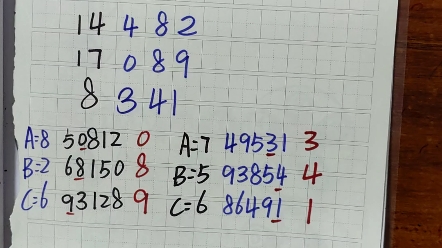 14 4 8 2
17 0 8 9
8 3 4 1
A=8 50812 0 A=7 49531 3
B=2 68150 8 B=5 93854 4
C=6 93128 9 C=6 86491 1